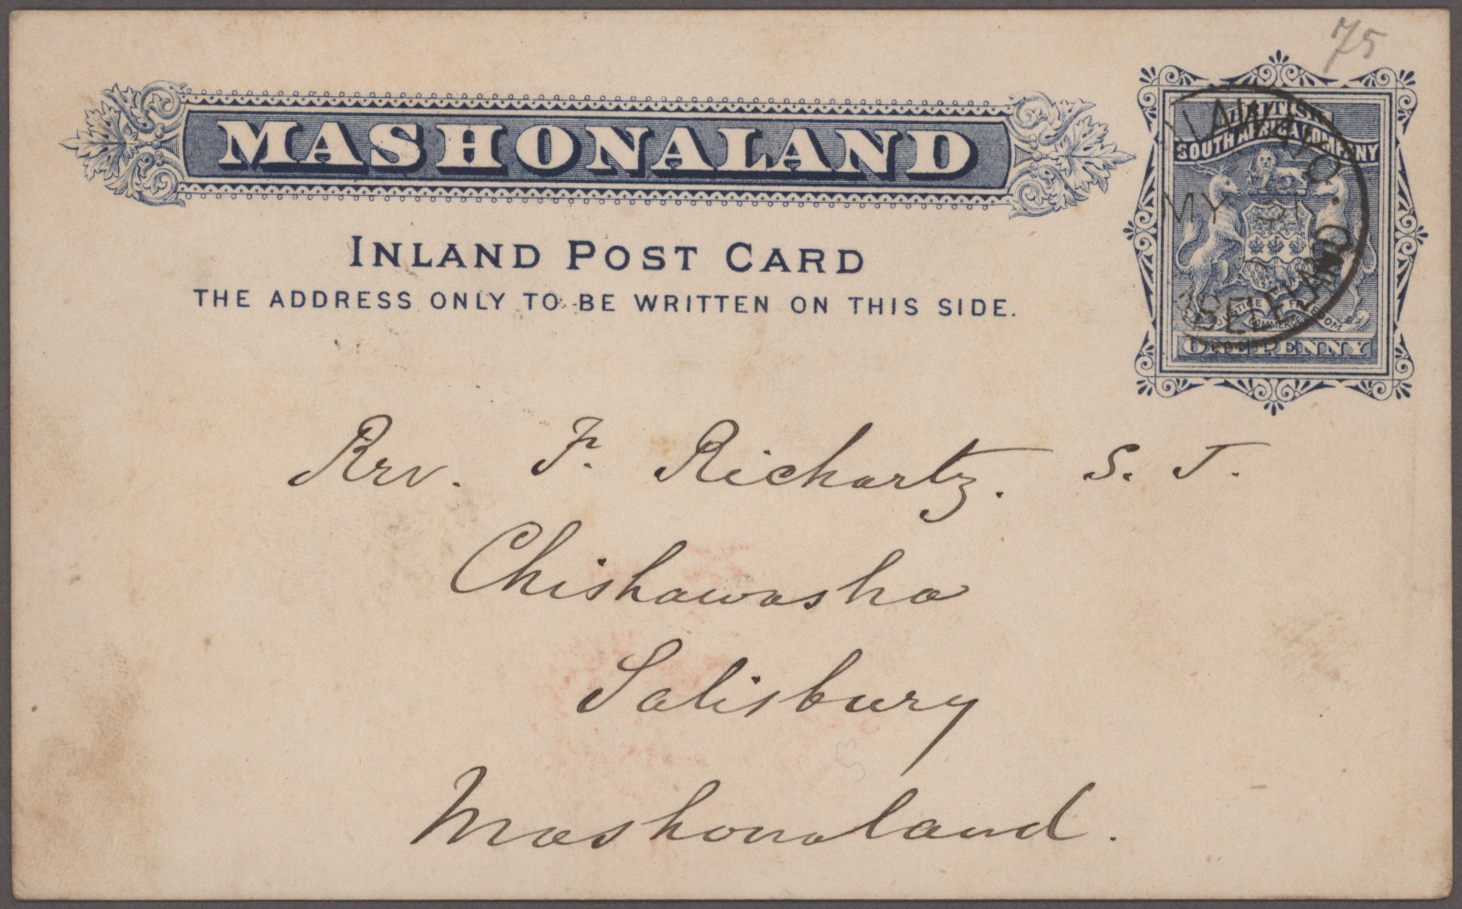 75
MASHONALAND
BRITISH
SOUTH AFRICA COMPANY
INLAND POST CARD
THE ADDRESS ONLY TO BE WRITTEN ON THIS SIDE.
MY 31
JUSTICE FREEDOM
COMMERCE
ONE PENNY
Rev. F. Richartz. S. J.
Chishawasha
Salisbury
Mashonaland.